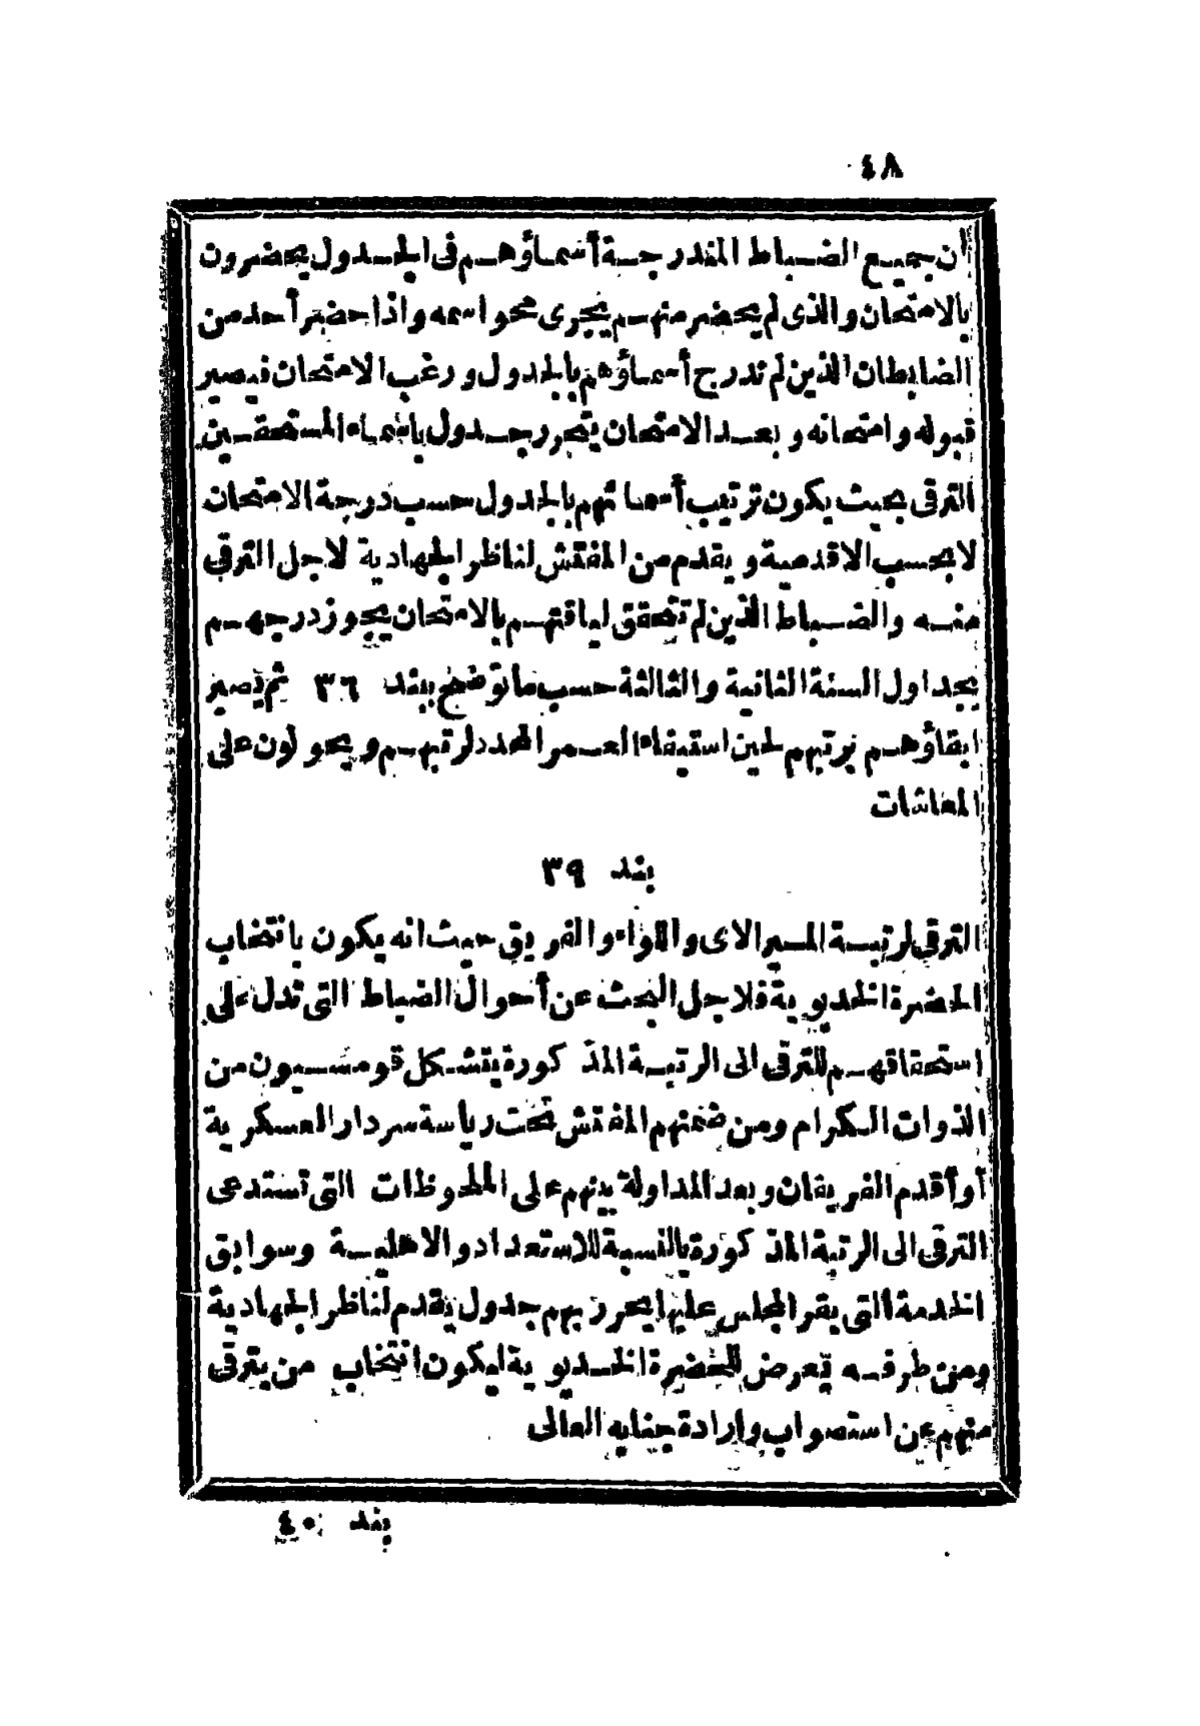 ٤٨
أن جميع الضباط المندرجة أسماؤهم فى الجدول يحضرون
بالامتحان والذى لم يحضر منهم يجرى محو اسمه واذا حضر أحد من
الضابطان الذين لم تدرج أسماؤهم بالجدول ورغب الامتحان فيصير
قبوله وامتحانه وبعد الامتحان يتحرر جدول باسماء المستحقين
الترقى بحيث يكون ترتيب أسمائهم بالجدول حسب درجة الامتحان
لا بحسب الاقدمية ويقدم من المفتش لناظر الجهادية لاجل الترقى
منه والضباط الذين لم تتحقق لياقتهم بالامتحان يجوز درجهم
بجداول السنة الثانية والثالثة حسب ما توضح ببند ٣٦ ثم يصير
ابقاؤهم برتبهم لحين استيفاء العمر المحدد لرتبهم ويحولون على
المعاشات
بند ٣٩
الترقى لرتبة المير الاى واللواء والفريق حيث انه يكون بانتخاب
الحضرة الخديوية فلاجل البحث عن أحوال الضباط التى تدل على
استحقاقهم للترقى الى الرتبة المذكورة يتشكل قومسيون من
الذوات الكرام ومن ضمنهم المفتش تحت رياسة سردار العسكرية
أو أقدم الفريقان وبعد المداولة بينهم على الملحوظات التى تستدعى
الترقى الى الرتبة المذكورة بالنسبة للاستعداد والاهلية وسوابق
الخدمة التى يقر المجلس عليها يحرر بهم جدول يقدم لناظر الجهادية
ومن طرفه تعرض للحضرة الخديوية ليكون انتخاب من يترقى
منهم عن استصواب وارادة جنابه العالى
بند ٤٠